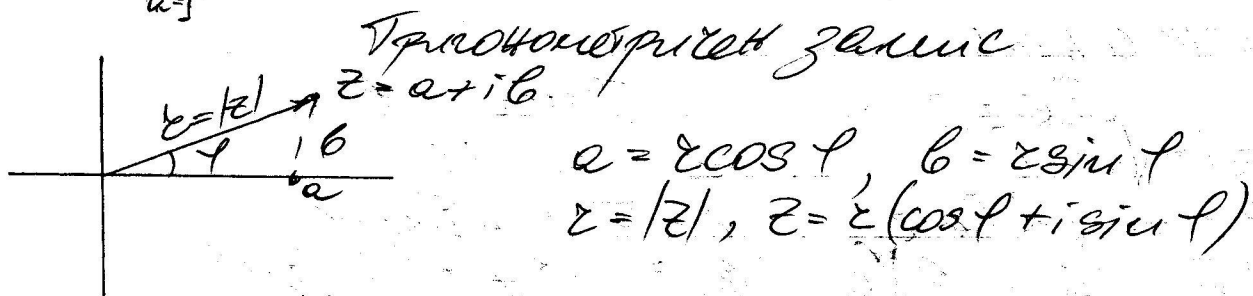 k=1
Тригонометричен запис
r=|z|
z=a+ib
φ
b
a
a = r cos φ, b = r sin φ
r = |z|, z = r(cos φ + i sin φ)